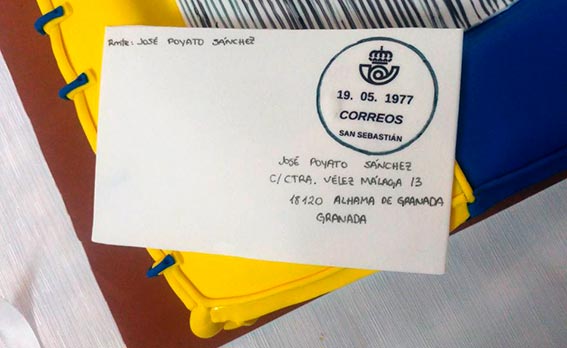 Rmte: JOSÉ POYATO SÁNCHEZ
19. 05. 1977
CORREOS
SAN SEBASTIÁN
JOSÉ POYATO SÁNCHEZ
C/ CTRA. VÉLEZ MÁLAGA 13
18120 ALHAMA DE GRANADA
GRANADA